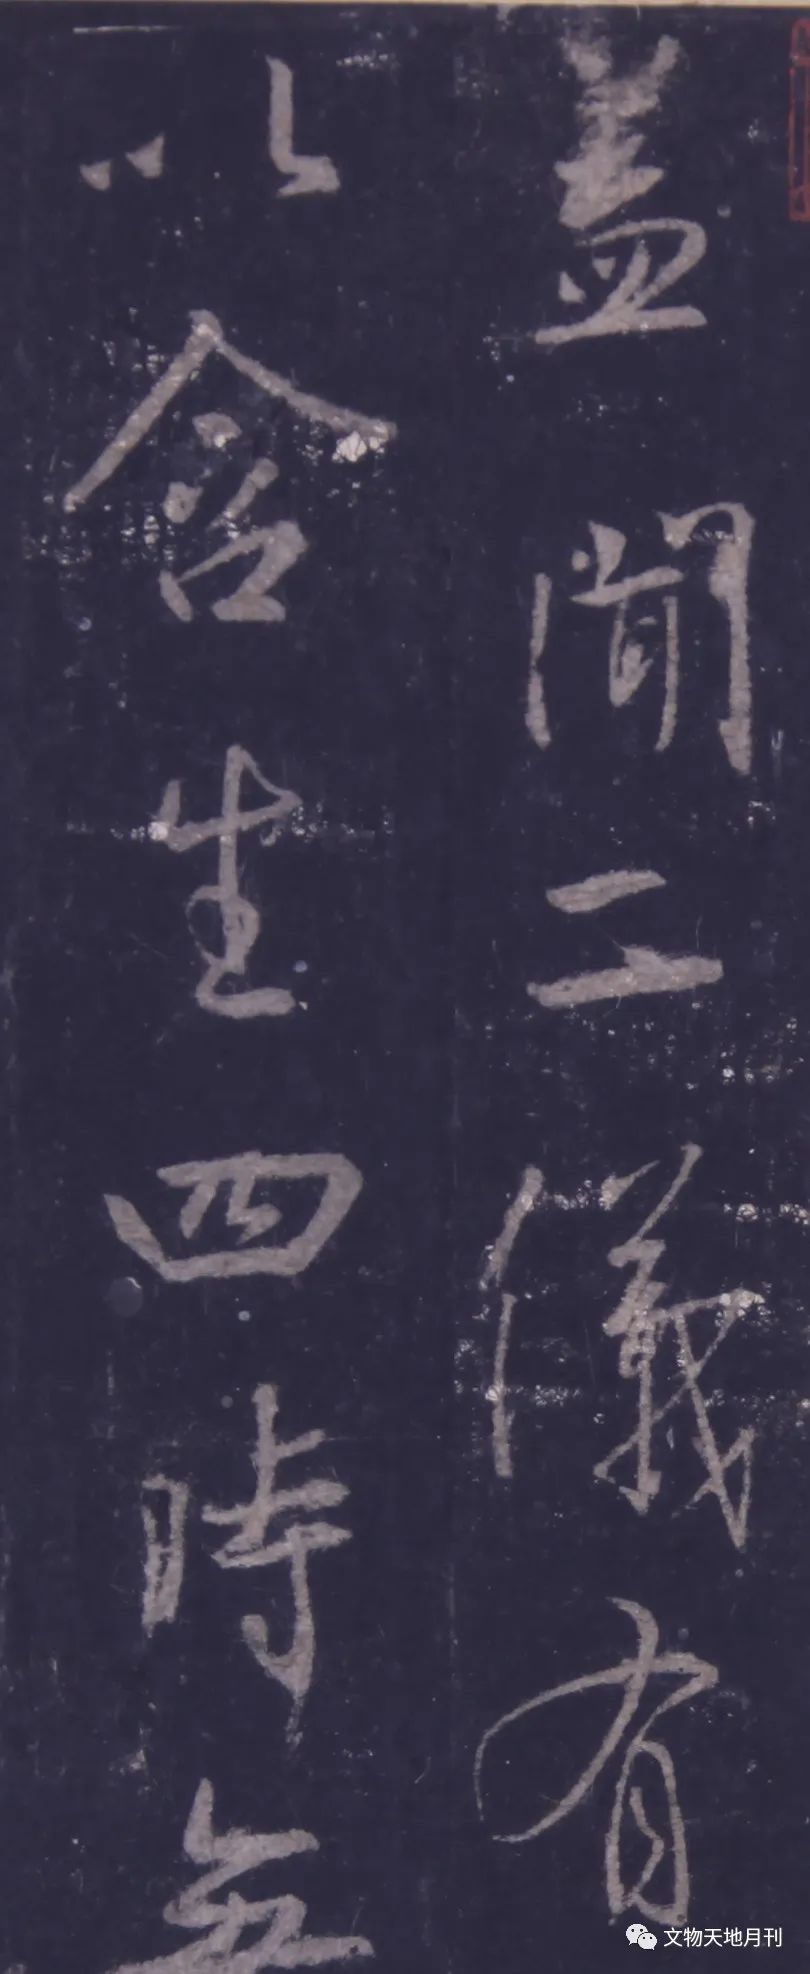 蓋聞二儀有
以含生四時無
文物天地月刊